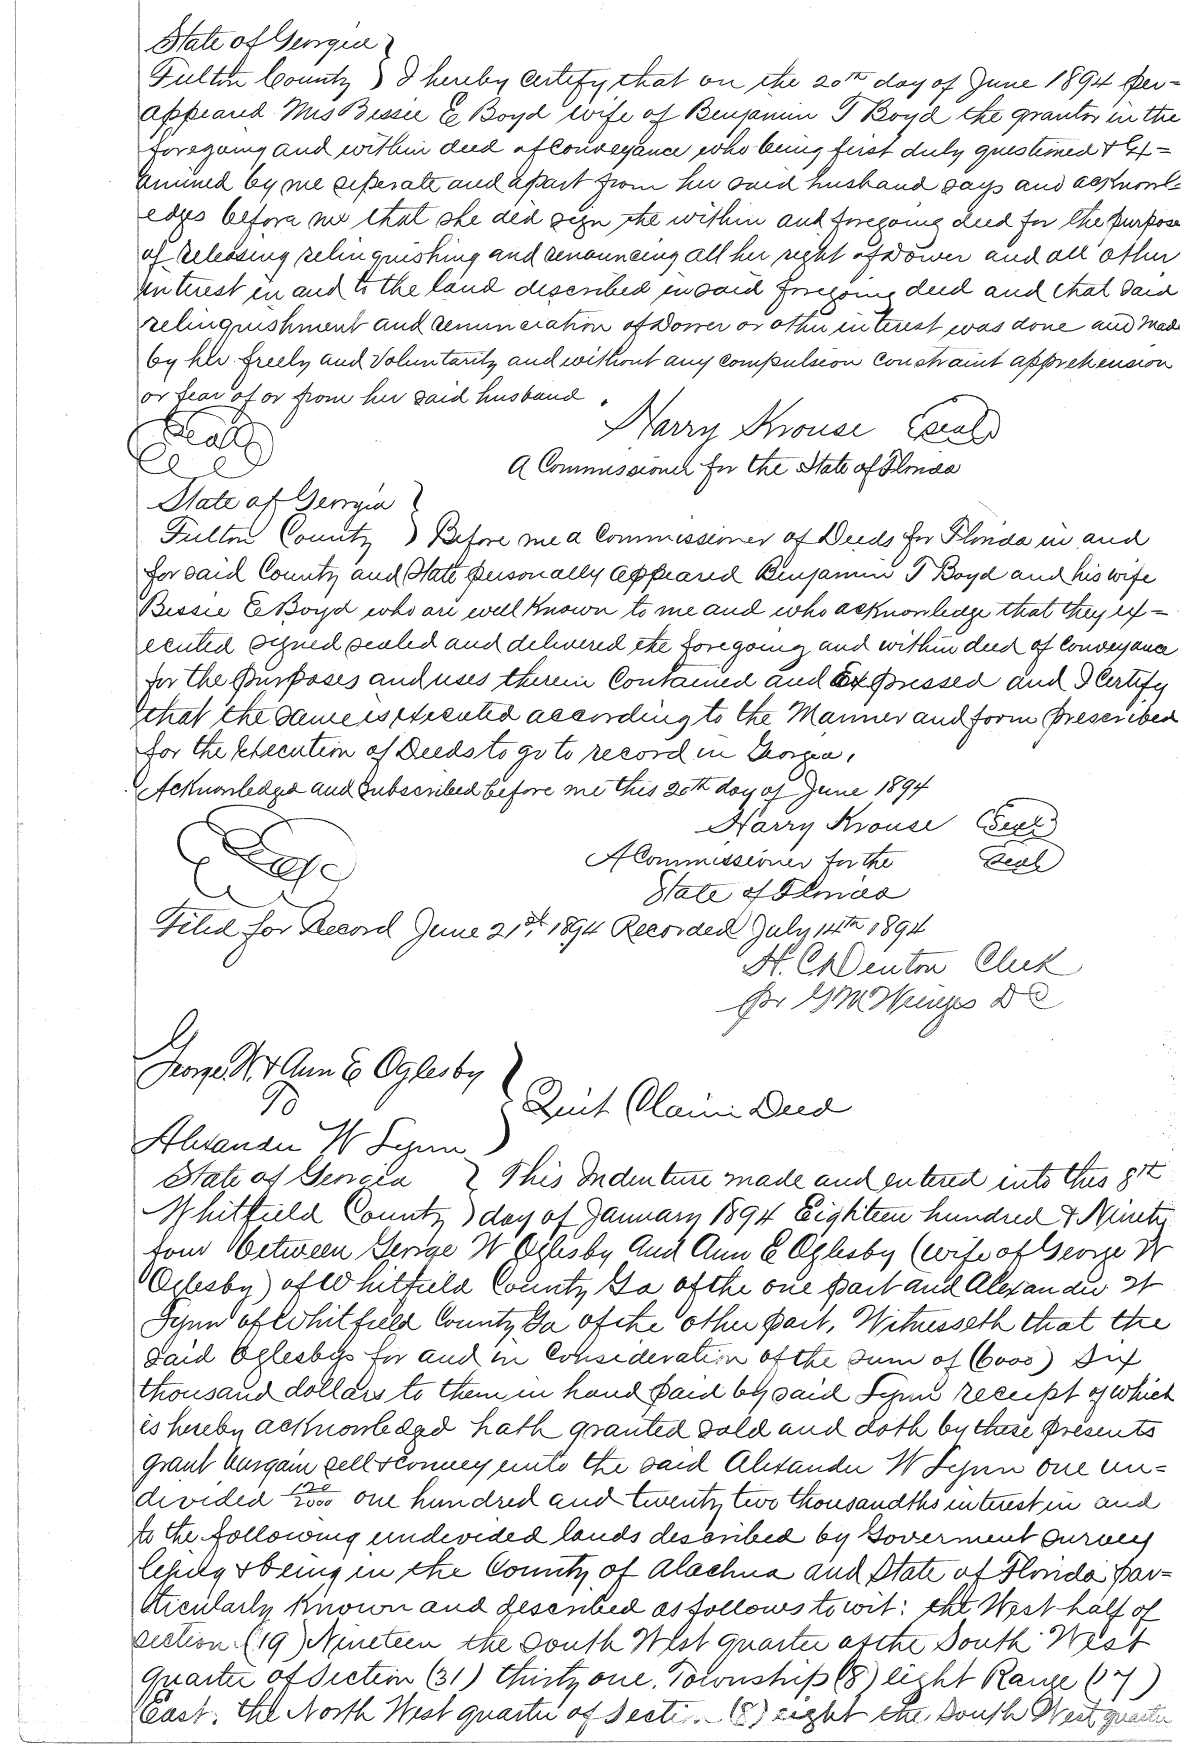 State of Georgia }
Fulton County } I hereby certify that on the 20th day of June 1894 per=
appeared Mrs Bessie E Boyd wife of Benjamin T Boyd the grantor in the
foregoing and within deed of conveyance who being first duly questioned & Ex=
amined by me seperate and apart from her said husband says and acknowl=
edges before me that she did sign the within and foregoing deed for the purpose
of releasing relinquishing and renouncing all her right of Dower and all other
interest in and to the land described in said foregoing deed and that said
relinquishment and renunciation of Dower or other interest was done and made
by her freely and voluntarily and without any compulsion constraint apprehension
or fear of or from her said husband.
Harry Krouse (Seal)
(Seal)
A Commissioner for the State of Florida
State of Georgia }
Fulton County } Before me a Commissioner of Deeds for Florida in and
for said County and State personally appeared Benjamin T Boyd and his wife
Bessie E Boyd who are well known to me and who acknowledge that they ex=
ecuted signed sealed and delivered the foregoing and within deed of conveyance
for the purposes and uses therein contained and Expressed and I certify
that the same is executed according to the Manner and form prescribed
for the execution of Deeds to go to record in Georgia.
Acknowledged and Subscribed before me this 20th day of June 1894
Harry Krouse (Seal)
A Commissioner for the (Seal)
State of Florida
Filed for Record June 21st, 1894 Recorded July 14th 1894
H. C. Denton Clerk
pr G M D C
George W. & Ann E Oglesby }
To } Quit Claim Deed
Alexander W Lynn }
State of Georgia } This Indenture made and entered into this 8th
Whitfield County } day of January 1894 Eighteen hundred & Ninety
four between George W Oglesby and Ann E Oglesby (wife of George W
Oglesby) of Whitfield County Ga of the one part and Alexander W
Lynn of Whitfield County Ga of the other part, Witnesseth that the
said Oglesbys for and in consideration of the sum of (6000) Six
thousand dollars to them in hand paid by said Lynn receipt of which
is hereby acknowledged hath granted sold and doth by these presents
grant bargain sell & convey unto the said Alexander W Lynn one un=
divided 120/2000 one hundred and twenty two thousandths interest in and
to the following undivided lands described by Goverment survey
lying & being in the County of Alachua and State of Florida par=
ticularly known and described as follows to wit: the West half of
section (19) Nineteen the South West quarter of the South West
quarter of Section (31) thirty one. Township (8) eight Range (17)
East. the North West quarter of Section (8) eight the South West quarter